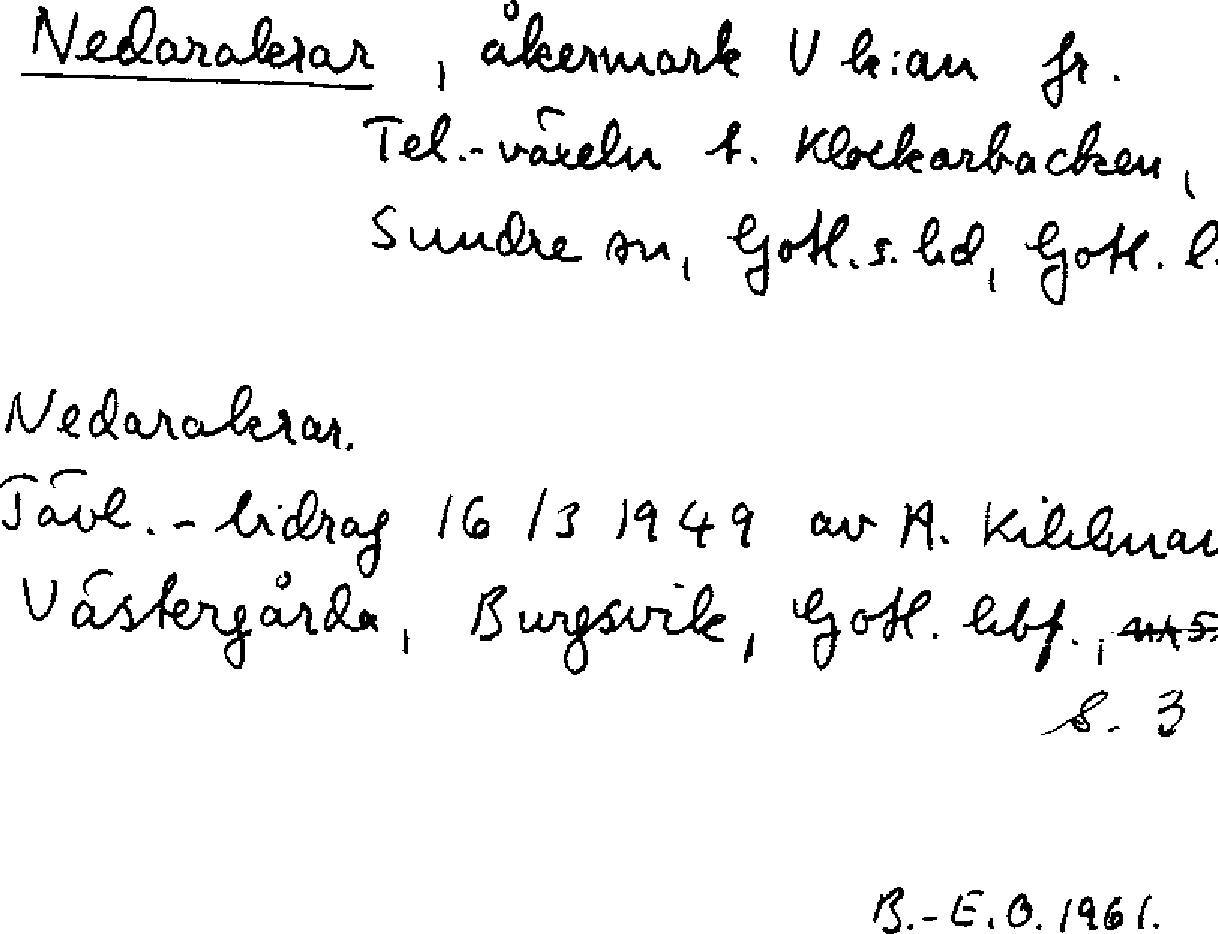 Nedarakrar, åkermark V k:an fr.
Tel.-växeln t. Klockarbacken,
Sundre sn, Gotl.s.hd, Gotl. l.
Nedarakrar.
Tävl.-bidrag 16/3 1949 av A.
Västergårda, Burgsvik, Gotl. hbf.,
s. 3
B.-E.O. 1961.